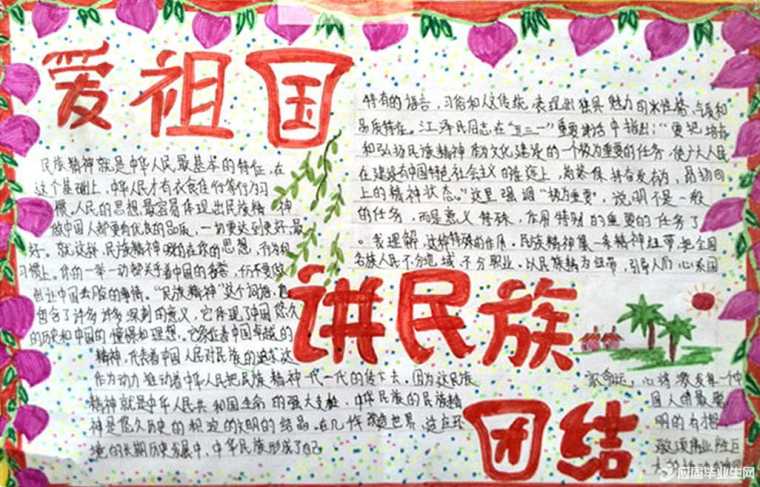 爱祖国
民族精神就是中华人民最基本的特征,在
这个基础上,中华人民才有衣食住行等行为习
惯。人民的思想最容易体现出民族精神
做中国人都要有优良的品质,一切要达到更好,最
好。就这样,民族精神
在你的思想,行为和
习惯上。你的一举一动都关系着中国的
做
出让中国丢脸的事情。"民族精神"这个词语
包含了许多许多深刻的意义,它体现了中国
的历史和中国的憧憬和理想。它象征着中国卓越的
精神,代表着中国人民对民族的追求
作为动力推动着中华人民把民族精神一代一代的传下去,因为这民族
精神就是中华人民共和国生命的强大支柱,中华民族的民族精
神是悠久历史的积淀的文明的结晶。在几
改造世界,适应环
境的长期历史发展中,中华民族形成了自己
特有的语言,习俗和人文传统,表现出独具魅力的
气质和
品质特征。江泽民同志在"五三一"重要讲话中指出:"要把培育
和弘扬民族精神作为文化建设的一个极为重要的任务,使广大人民
在建设有中国特色社会主义的
上,始终保持奋发有为,昂扬向
上的精神状态。"这里强调"极为重要",说明不是一般
的任务,而是意义特殊,作用特别的重要的任务了
。我理解,这种特殊的作用。民族精神像一条精神纽带把全国
各族人民不分地域,不分职业。以民族精为纽带,引导人们心系国
讲民族
团结
家命运,心
激发每一个中
国人的最
明的
应届毕业生网